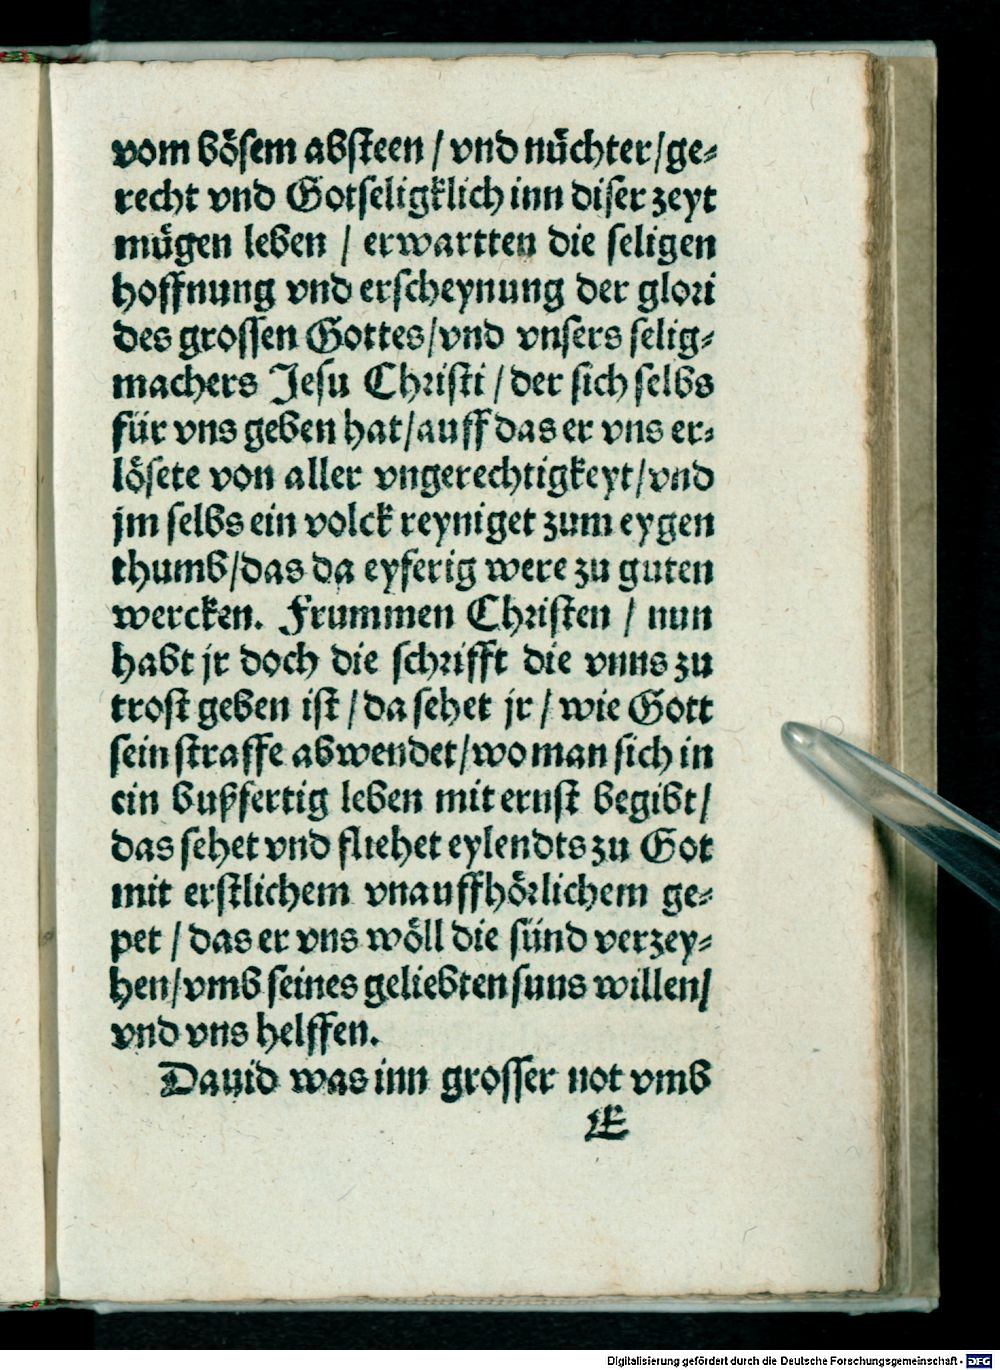 vom bösem absteen / vnd nüchter / ge⸗
recht vnd Gotseligklich inn diser zeyt
mügen leben / erwartten die seligen
hoffnung vnd erscheynung der glori
des grossen Gottes / vnd vnsers selig⸗
machers Jesu Christi / der sich selbs
für vns geben hat / auff das er vns er⸗
lösete von aller vngerechtigkeyt / vnd
jm selbs ein volck reyniget zum eygen
thumb / das da eyferig were zu guten
wercken. Frummen Christen / nun
habt jr doch die schrifft die vnns zu
trost geben ist / da sehet jr / wie Gott
sein straffe abwendet / wo man sich in
ein bußfertig leben mit ernst begibt /
das sehet vnd fliehet eylendts zu Got
mit erstlichem vnauffhörlichem ge⸗
pet / das er vns wöll die sünd verzey⸗
hen / vmb seines geliebten suns willen /
vnd vns helffen.
Dauid was inn grosser not vmb
E
Digitalisierung gefördert durch die Deutsche Forschungsgemeinschaft - DFG